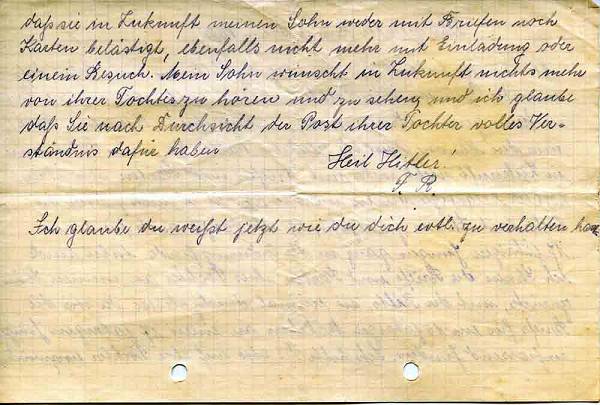 daß sie in Zukunft meinen Sohn weder mit Briefen noch
Karten belästigt, ebenfalls nicht mehr mit Einladung oder
einem Besuch. Mein Sohn wünscht in Zukunft nichts mehr
von ihrer Tochter zu hören und zu sehen, und ich glaube
daß Sie nach Durchsicht der Post ihrer Tochter volles Ver-
ständnis dafür haben
Heil Hitler!
F. R.
Ich glaube du weißt jetzt wie du dich evtl. zu verhalten hast